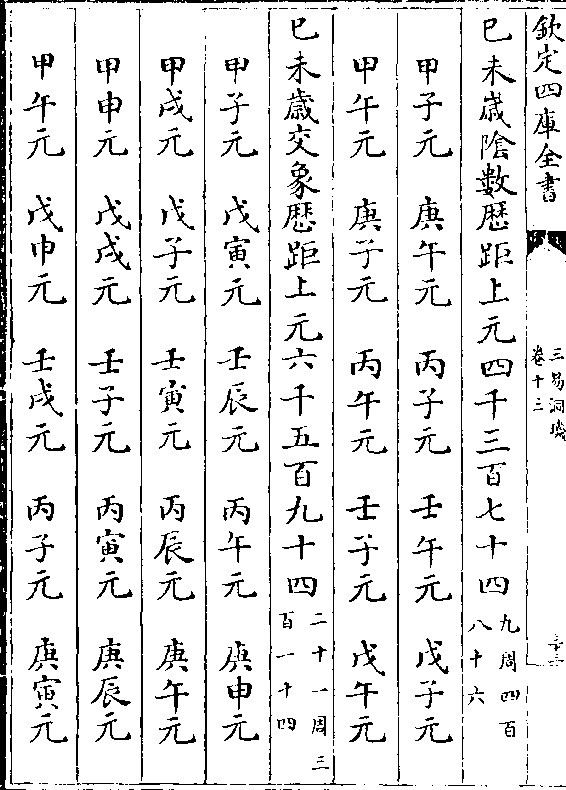 欽定四庫全書
三易洞璣
卷十三
巳未歲陰數歴距上元四千三百七十四
九周四百
八十六
甲子元 庚午元 丙子元 壬午元 戊子元
甲午元 庚子元 丙午元 壬子元 戊午元
巳未歲交象歴距上元六千五百九十四
二十一周三
百一十四
甲子元 戊寅元 壬辰元 丙午元 庚申元
甲戌元 戊子元 壬寅元 丙辰元 庚午元
甲申元 戊戌元 壬子元 丙寅元 庚辰元
甲午元 戊申元 壬戌元 丙子元 庚寅元